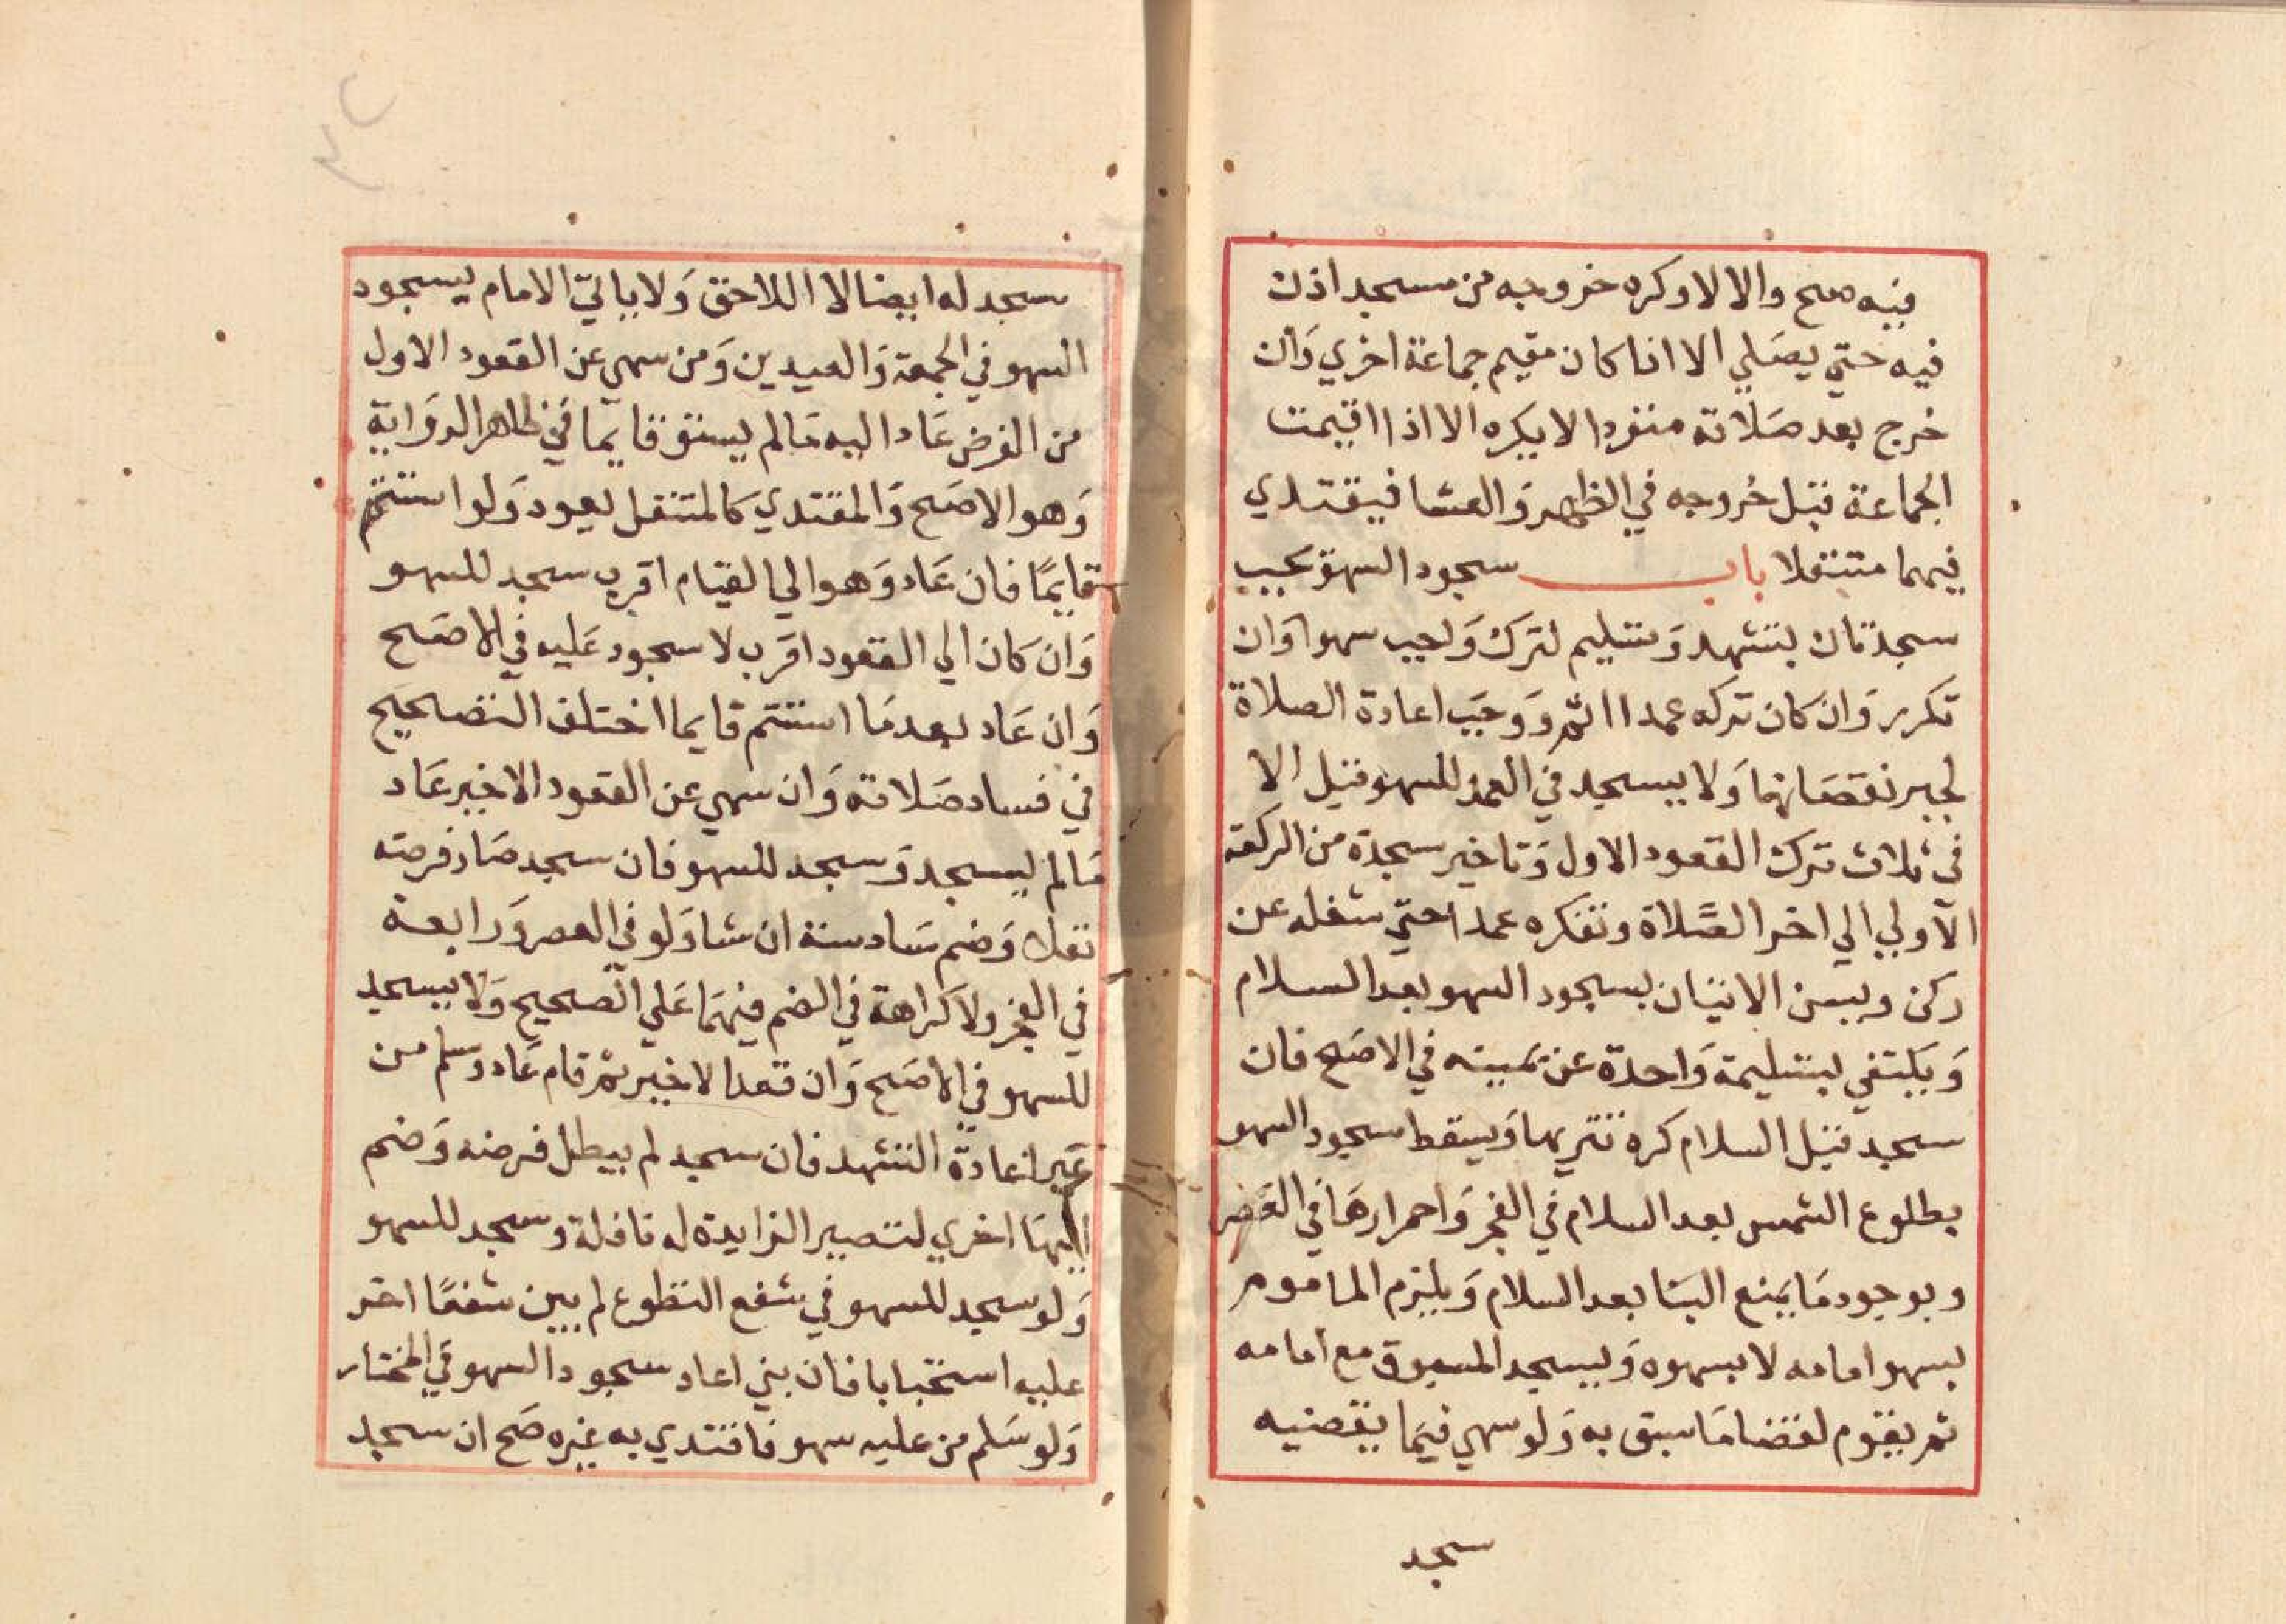 فيه صح والا لا وكره خروجه من مسجد اذن
فيه حتي يصلي الا اذا كان مقيم جماعة اخري وان
خرج بعد صلاته منفردا لا يكره الا اذا اقيمت
الجماعة قبل خروجه في الظهر والعشا فيقتدي
فيهما متنفلا باب سجود السهو يجب
سجدتان بتشهد وتسليم لترك واجب سهوا وان
تكرر وان كان تركه عمدا اثم ووجب اعادة الصلاة
لجبر نقصانها ولا يسجد في العمد للسهو قيل الا
في ثلاث ترك القعود الاول وتاخير سجدة من الركعة
الاولي الي اخر الصلاة وتفكره عمدا حتي شغله عن
ركن ويسن الاتيان بسجود السهو بعد السلام
ويكتفي بتسليمة واحدة عن يمينه في الاصح فان
سجد قبل السلام كره تنزيها ويسقط سجود السهو
بطلوع الشمس بعد السلام في الفجر واحمرارها في العصر
وبوجود ما يمنع البنا بعد السلام ويلزم الماموم
بسهو امامه لا بسهوه ويسجد المسبوق مع امامه
ثم يقوم لقضا ما سبق به ولو سهي فيما يقضيه
سجد
سجد له ايضا لا اللاحق ولا ياتي الامام بسجود
السهو في الجمعة والعيدين ومن سهي عن القعود الاول
من الفرض عاد اليه ما لم يستو قايما في ظاهر الرواية
وهو الاصح والمقتدي كالمتنفل يعود ولو استتم
قايما فان عاد وهو الي القيام اقرب سجد للسهو
وان كان الي القعود اقرب لا سجود عليه في الاصح
وان عاد بعد ما استتم قايما اختلف التصحيح
في فساد صلاته وان سهي عن القعود الاخير عاد
ما لم يسجد وسجد للسهو فان سجد صار فرضه
نفلا وضم سادسة ان شا ولو في العصر ورابعة
في الفجر ولا كراهة في الضم فيهما علي الصحيح ولا يسجد
للسهو في الاصح وان قعد الاخير ثم قام عاد وسلم من
غير اعادة التشهد فان سجد لم يبطل فرضه وضم
اليها اخري لتصير الزايدة له نافلة وسجد للسهو
ولو سجد للسهو في شفع التطوع لم يبن شفعا اخر
عليه استحبابا فان بني اعاد سجود السهو في المختار
ولو سلم من عليه سهو فاقتدي به غيره صح ان سجد